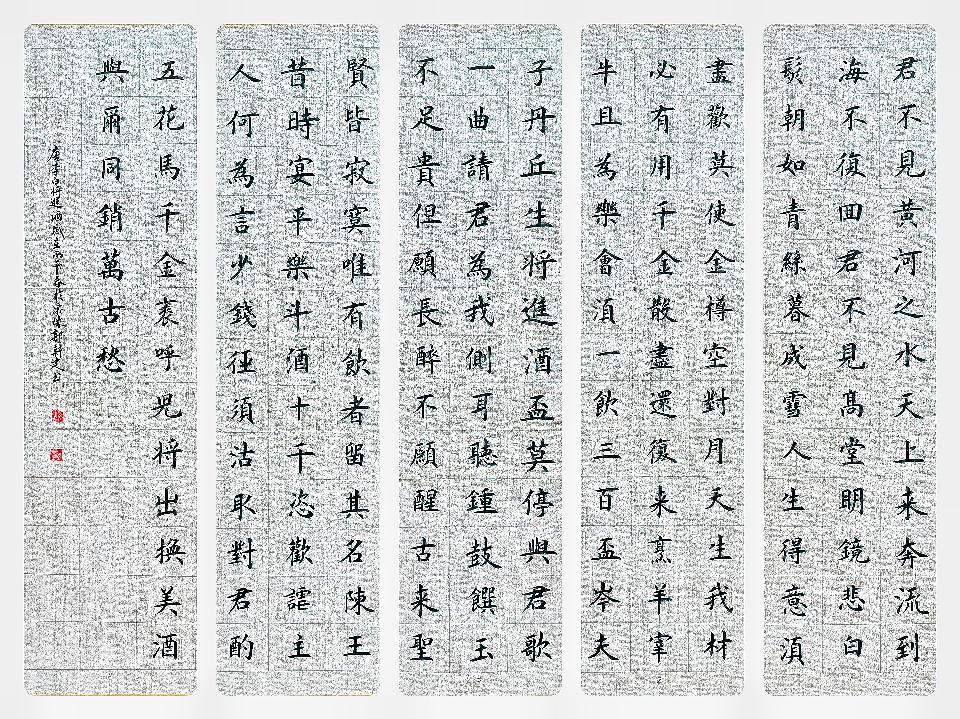 君不見黄河之水天上来奔流到
海不復回君不見髙堂明鏡悲白
髮朝如青絲暮成雪人生得意湏
盡歡莫使金樽空對月天生我材
必有用千金散盡還復来烹羊宰
牛且為樂會湏一飲三百盃岑夫
子丹丘生将進酒盃莫停與君歌
一曲請君為我側耳聽鍾鼓饌玉
不足貴但願長醉不願醒古来聖
賢皆寂寞唯有飲者留其名陳王
昔時宴平樂斗酒十千恣歡謔主
人何為言少錢徑須沽取對君酌
五花馬千金裘呼児将出換美酒
與爾同銷萬古愁
唐李白将進酒